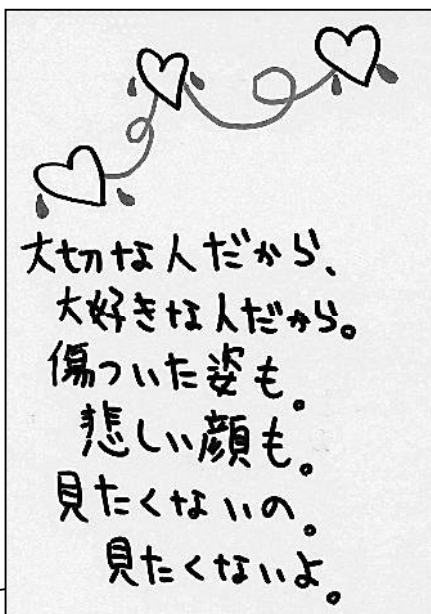 大切な人だから、
大好きな人だから。
傷ついた姿も。
悲しい顔も。
見たくないの。
見たくないよ。